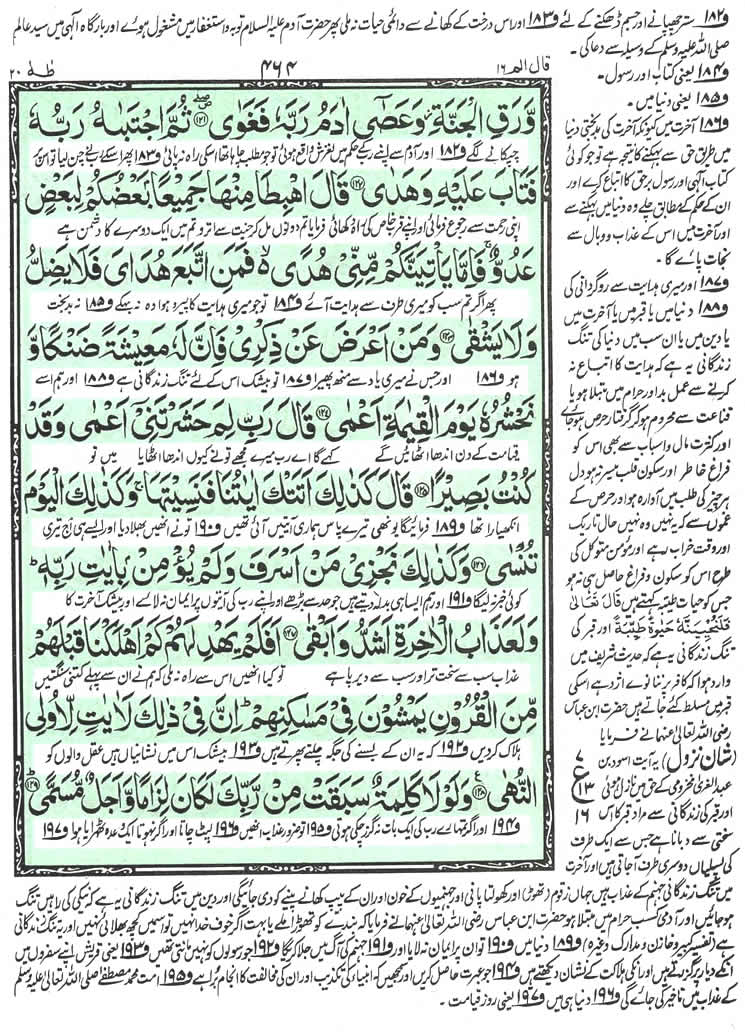 و۱۸۲ ستر چھپانے اور جسم ڈھکنے کے لئے و۱۸۳ اور اس درخت کے کھانے سے دائمی حیات نہ ملی پھر حضرت آدم علیہ السلام توبہ و استغفار میں مشغول ہوئے اور بارگاہ الٰہی میں سید عالم
قال الم ۱۶
۴۶۴
طٰہٰ ۲۰
وَّرَقِ الْجَنَّةِ ۫ وَعَصٰۤی اٰدَمُ رَبَّهٗ فَغَوٰی ۖ۱۲۱ ثُمَّ اجْتَبٰىهُ رَبُّهٗ
چپکانے لگے و۱۸۲ اور آدم سے اپنے رب کے حکم میں لغزش واقع ہوئی تو جو مطلب چاہا تھا اسکی راہ نہ پائی و۱۸۳ پھر اسکے رب نے چن لیا تو اس پر
فَتَابَ عَلَیْهِ وَهَدٰی ۱۲۲ قَالَ اهْبِطَا مِنْهَا جَمِیْعًۢا بَعْضُكُمْ لِبَعْضٍ
اپنی رحمت سے رجوع فرمائی اور اپنے قرب خاص کی راہ دکھائی فرمایا تم دونوں مل کر جنت سے اترو تم میں ایک دوسرے کا دشمن ہے
عَدُوٌّ ۚ فَاِمَّا یَاْتِیَنَّكُمْ مِّنِّیْ هُدًی ۙ۬ فَمَنِ اتَّبَعَ هُدَایَ فَلَا یَضِلُّ
پھر اگر تم سب کو میری طرف سے ہدایت آئے و۱۸۴ تو جو میری ہدایت کا پیرو ہوا وہ نہ بہکے و۱۸۵ نہ بدبخت
وَلَا یَشْقٰی ۱۲۳ وَمَنْ اَعْرَضَ عَنْ ذِكْرِیْ فَاِنَّ لَهٗ مَعِیْشَةً ضَنْكًا وَّ
ہو و۱۸۶ اور جس نے میری یاد سے منھ پھیرا و۱۸۷ تو بیشک اس کے لئے تنگ زندگانی ہے و۱۸۸ اور ہم اسے
نَحْشُرُهٗ یَوْمَ الْقِیٰمَةِ اَعْمٰی ۱۲۴ قَالَ رَبِّ لِمَ حَشَرْتَنِیْۤ اَعْمٰی وَقَدْ
قیامت کے دن اندھا اٹھائیں گے کہے گا اے رب میرے مجھے تو نے کیوں اندھا اٹھایا میں تو
كُنْتُ بَصِیْرًا ۱۲۵ قَالَ كَذٰلِكَ اَتَتْكَ اٰیٰتُنَا فَنَسِیْتَهَا ۚ وَكَذٰلِكَ الْیَوْمَ
انکھیارا تھا و۱۸۹ فرمائیگا یونہی تیرے پاس ہماری آیتیں آئی تھیں و۱۹۰ تو نے انھیں بھلا دیا اور ایسے ہی آج تیری
تُنْسٰی ۱۲۶ وَكَذٰلِكَ نَجْزِیْ مَنْ اَسْرَفَ وَلَمْ یُؤْمِنْۢ بِاٰیٰتِ رَبِّهٖ ؕ
کوئی خبر نہ لیگا و۱۹۱ اور ہم ایسا ہی بدلہ دیتے ہیں جو حد سے بڑھے اور اپنے رب کی آیتوں پر ایمان نہ لائے اور بیشک آخرت کا
وَلَعَذَابُ الْاٰخِرَةِ اَشَدُّ وَاَبْقٰی ۱۲۷ اَفَلَمْ یَهْدِ لَهُمْ كَمْ اَهْلَكْنَا قَبْلَهُمْ
عذاب سب سے سخت تر اور سب سے دیر پا ہے تو کیا انھیں اس سے راہ نہ ملی کہ ہم نے ان سے پہلے کتنی سنگتیں
مِّنَ الْقُرُوْنِ یَمْشُوْنَ فِیْ مَسٰكِنِهِمْ ؕ اِنَّ فِیْ ذٰلِكَ لَاٰیٰتٍ لِّاُولِی
ہلاک کردیں و۱۹۲ کہ یہ ان کے بسنے کی جگہ چلتے پھرتے ہیں و۱۹۳ بیشک اس میں نشانیاں ہیں عقل والوں کو
النُّهٰی ۱۲۸ وَلَوْلَا كَلِمَةٌ سَبَقَتْ مِنْ رَّبِّكَ لَكَانَ لِزَامًا وَّاَجَلٌ مُّسَمًّی ۱۲۹
و۱۹۴ اور اگر تمہارے رب کی ایک بات نہ گزر چکی ہوتی و۱۹۵ تو ضرور عذاب انھیں و۱۹۶ لپٹ جاتا اور اگر نہ ہوتا ایک وعدہ ٹھہرایا ہوا و۱۹۷
صلی اللہ علیہ وسلم کے وسیلہ سے دعا کی۔
و۱۸۴ یعنی کتاب اور رسول۔
و۱۸۵ یعنی دنیا میں۔
و۱۸۶ آخرت میں کیونکہ آخرت کی بدبختی دنیا
میں طریق حق سے بہکنے کا نتیجہ ہے تو جو کوئی
کتاب الٰہی اور رسول برحق کا اتباع کرے اور
ان کے حکم کے مطابق چلے وہ دنیا میں بہکنے سے
اور آخرت میں اس کے عذاب و وبال سے
نجات پائے گا۔
و۱۸۷ اور میری ہدایت سے روگردانی کی
و۱۸۸ دنیا میں یا قبر میں یا آخرت میں
یا دین میں یا ان سب میں دنیا کی تنگ
زندگانی یہ ہے کہ ہدایت کا اتباع نہ
کرنے سے عمل بد اور حرام میں مبتلا ہو یا
قناعت سے محروم ہو کر گرفتار حرص ہوجائے
اور کثرت مال و اسباب سے بھی اس کو
فراغ خاطر اور سکون قلب میسر نہ ہو دل
ہر چیز کی طلب میں آوارہ ہو اور حرص کے
غموں سے کہ یہ نہیں وہ نہیں حال تاریک
اور وقت خراب رہے اور مؤمن متوکل کی
طرح اس کو سکون و فراغ حاصل ہی نہ ہو
جس کو حیات طیبہ کہتے ہیں قَالَ تَعَالٰی
فَلَنُحْیِیَنَّهٗ حَیٰوةً طَیِّبَةً اور قبر کی
تنگ زندگانی یہ ہے کہ حدیث شریف میں
وارد ہوا کہ کافر پر ننانوے اژدہے اسکی
قبر میں مسلط کئے جاتے ہیں حضرت ابن عباس
رضی اللہ تعالیٰ عنہما نے فرمایا
(شان نزول) یہ آیت اسود بن
عبدالعزیٰ مخزومی کے حق میں نازل ہوئی
اور قبر کی زندگانی سے مراد قبر کا اس
سختی سے دبانا ہے جس سے ایک طرف
کی پسلیاں دوسری طرف آجاتی ہیں اور آخرت
۷
ع
۱۳
۱۶
میں تنگ زندگانی جہنم کے عذاب ہیں جہاں زقوم (تھوہڑ) اور کھولتا پانی اور جہنمیوں کے خون اور ان کے پیپ کھانے پینے کو دی جائیگی اور دین میں تنگ زندگانی یہ ہے کہ نیکی کی راہیں تنگ
ہوجائیں اور آدمی کسب حرام میں مبتلا ہو حضرت ابن عباس رضی اللہ تعالیٰ عنہما نے فرمایا کہ بندے کو تھوڑا ملے یا بہت اگر خوف خدا نہیں تو اسمیں کچھ بھلائی نہیں اور یہ تنگ زندگانی
ہے (تفسیر کبیر و خازن و مدارک وغیرہ) و۱۸۹ دنیا میں و۱۹۰ تو ان پر ایمان نہ لایا اور و۱۹۱ جہنم کی آگ میں جلا کریگا و۱۹۲ جو رسولوں کو نہیں مانتی تھیں و۱۹۳ یعنی قریش اپنے سفروں میں
انکے دیار پر گزرتے ہیں اور انکی ہلاکت کے نشان دیکھتے ہیں و۱۹۴ جو عبرت حاصل کریں اور سمجھیں کہ انبیاء کی تکذیب اور ان کی مخالفت کا انجام برا ہے و۱۹۵ امت محمد مصطفےٰ صلی اللہ تعالیٰ علیہ وسلم
کے عذاب میں تاخیر کی جائے گی و۱۹۶ دنیا ہی میں و۱۹۷ یعنی روز قیامت۔